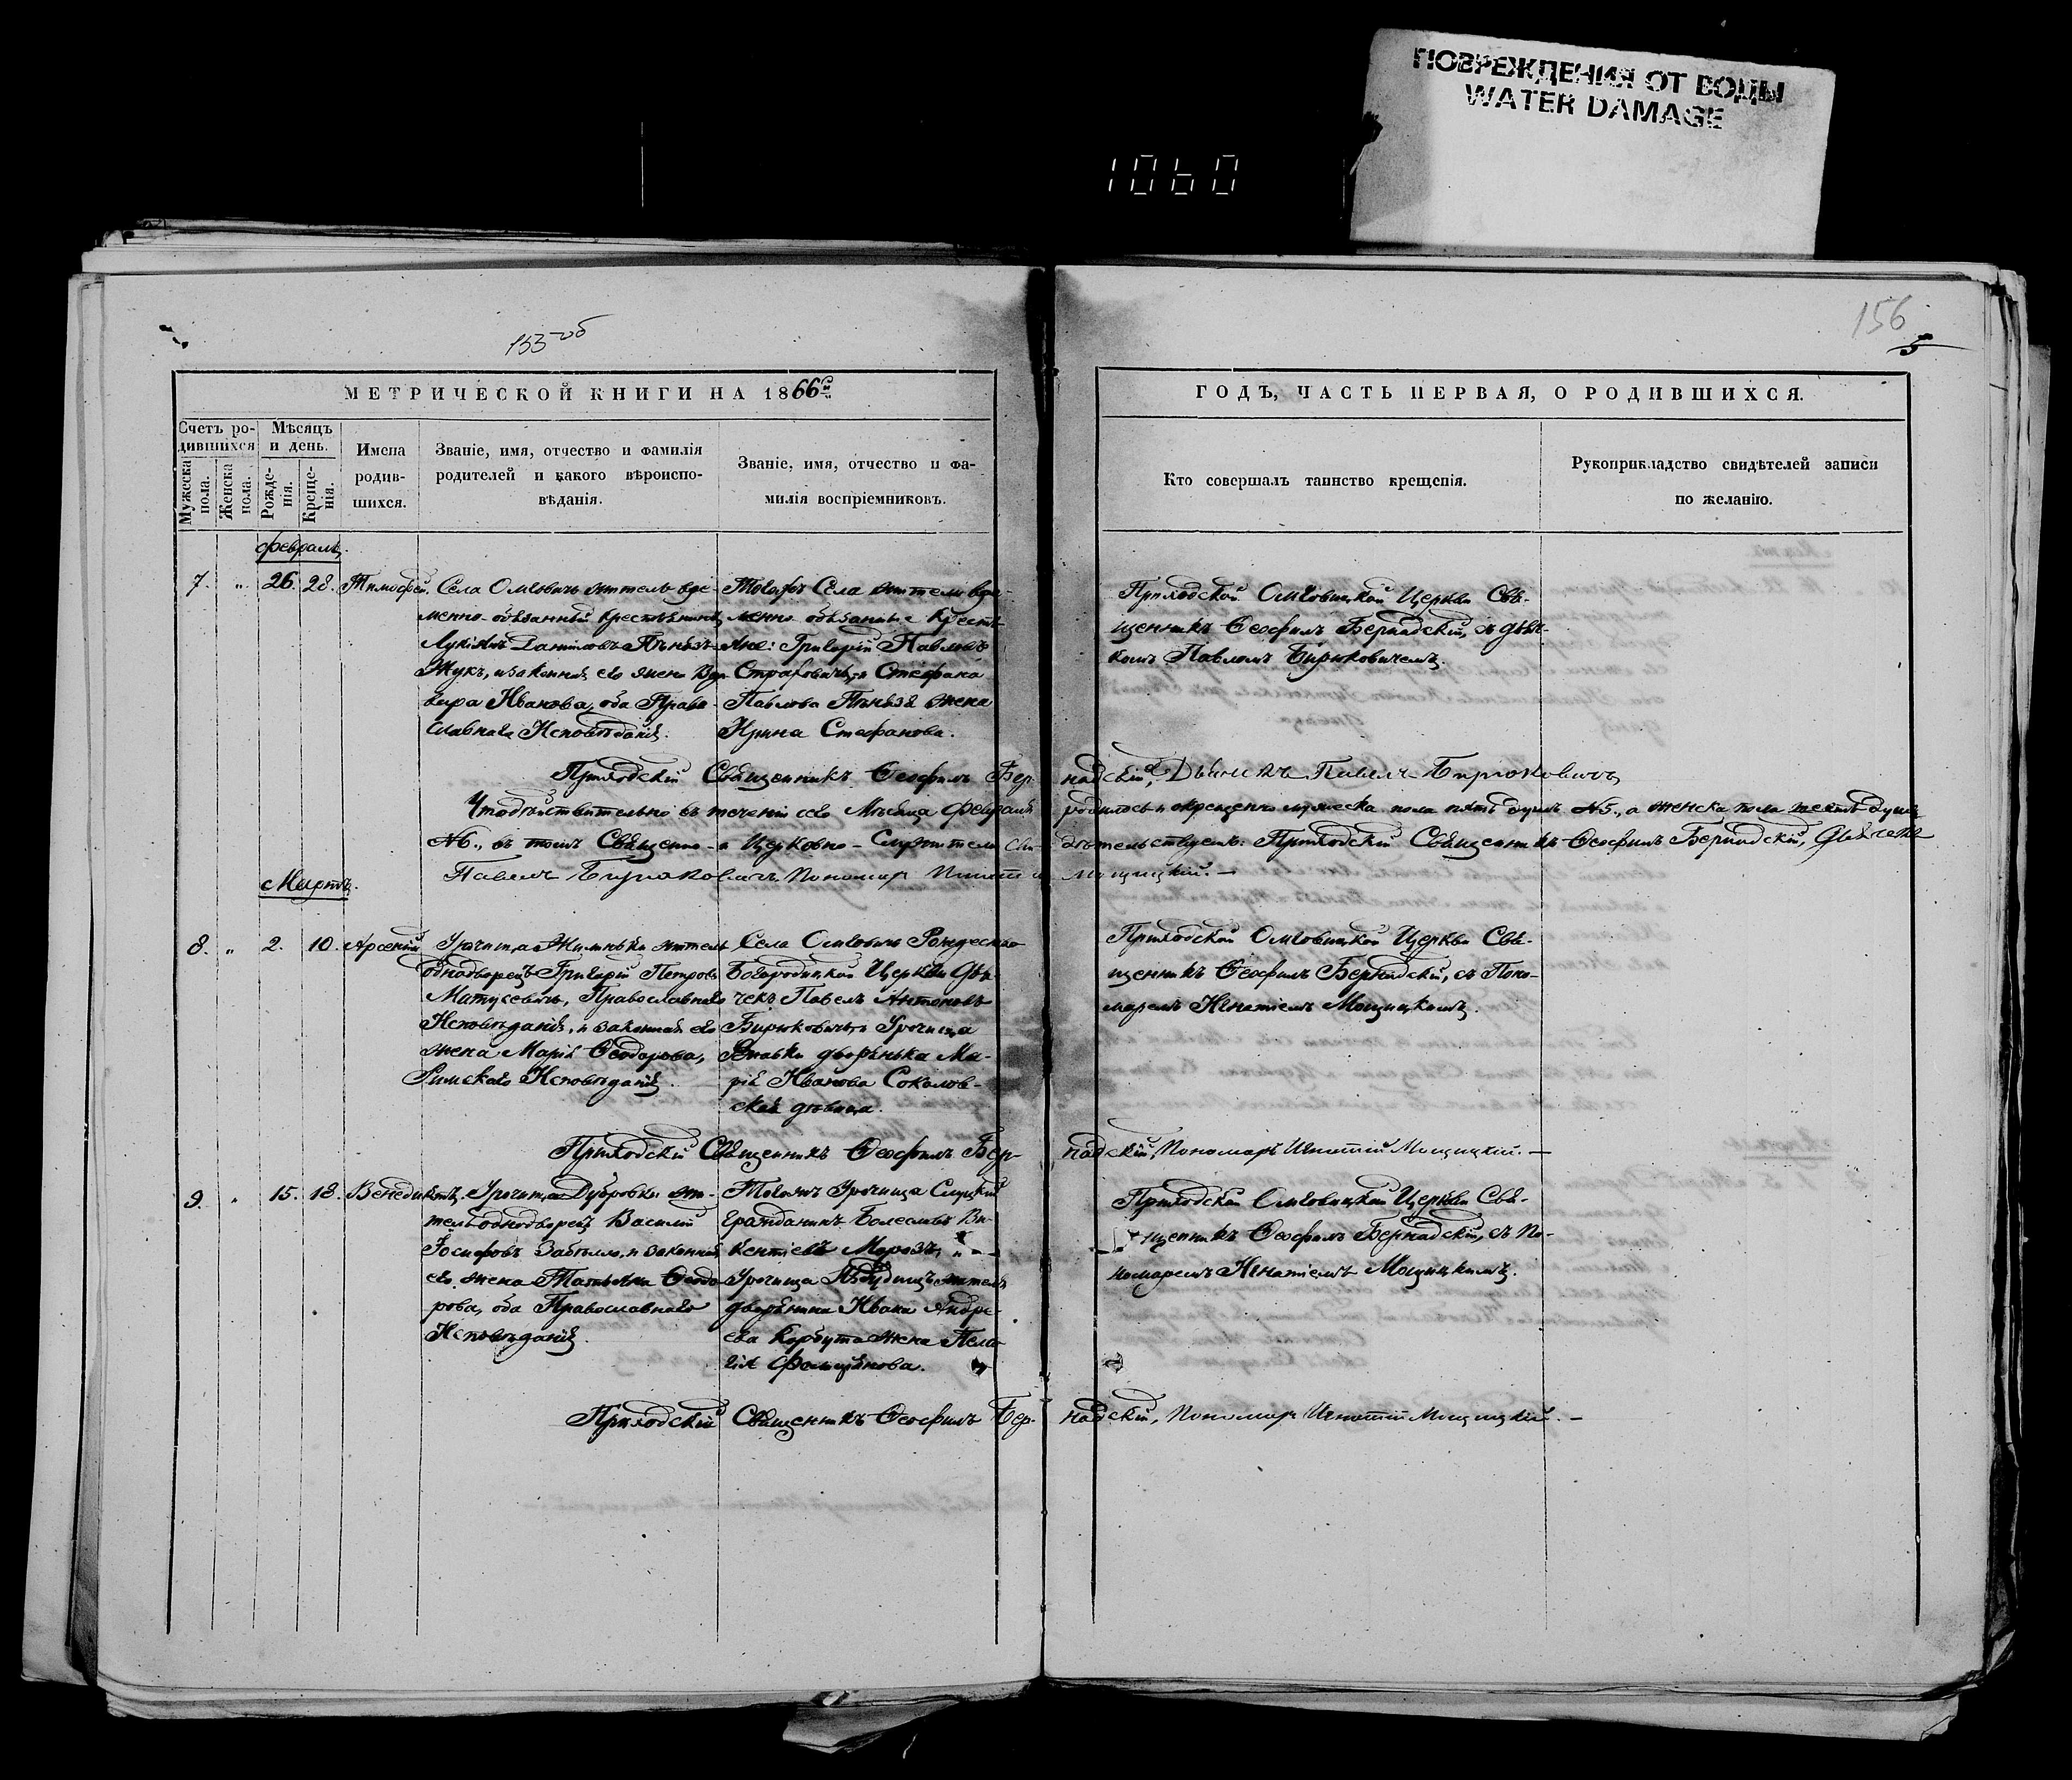 ПОВРЕЖДЕНИЯ ОТ ВОДЫ
WATER DAMAGE
1060
153 об
156
5
МЕТРИЧЕСКОЙ КНИГИ НА 1866й
ГОДЪ, ЧАСТЬ ПЕРВАЯ, О РОДИВШИХСЯ.
Счетъ ро-
дившихся
Мужеска пола.
Женска пола.
Мѣсяцъ
и день.
Рожде-
нія.
Креще-
нія.
Имена
родив-
шихся.
Званіе, имя, отчество и фамилія
родителей и какого вѣроиспо-
вѣданія.
Званіе, имя, отчество и фа-
милія воспріемниковъ.
Кто совершалъ таинство крещенія.
Рукоприкладство свидѣтелей записи
по желанію.
Февраль.
7. „ 26. 28. Тимофей.
Села Омговичъ житель вре-
менно-обязанный крестьянинъ
Лукіянъ Даниловъ Пѣнязь-
Жукъ, и законная его жена Вар-
вара Иванова, оба Право-
славнаго Исповѣданія.
Тогожъ Села жители вре-
менно обязанные Кресть-
яне: Григорій Павловъ
Страховичъ, и Стефана
Павлова Пѣнязя жена
Ирина Стефанова.
Приходской Омговицкой Церкви Свя-
щенникъ Ѳеофилъ Бернадскій, съ дьяч-
комъ Павломъ Бирюковичемъ.
Приходскій Священникъ Ѳеофилъ Бернадскій, Дьячекъ Павелъ Бирюковичъ
Что дѣйствительно въ теченіи сего Мѣсяца Февраля родилось и окрещено мужеска пола пять душъ №5., а женска пола шесть душъ
№6., въ томъ Священно- и Церковно-Служители свидѣтельствуемъ: Приходскій Священникъ Ѳеофилъ Бернадскій, Дьячекъ
Павелъ Бирюковичъ, Пономарь Игнатій Мощицкій.—
Мартъ.
8. „ 2. 10. Арсеній
Урочища Жилиньки житель
однодворецъ Григорій Петровъ
Матусевичъ, Православнаго
Исповѣданія, и законная его
жена Марія Ѳеодорова,
Римскаго Исповѣданія.
Села Омговичъ Рождество-
Богородицкой Церкви дья-
чекъ Павелъ Антоновъ
Бирюковичъ, и Урочища
дворянка Ма-
рія Иванова Соколов-
ская девица.
Приходской Омговицкой Церкви Свя-
щенникъ Ѳеофилъ Бернадскій, съ Поно-
маремъ Игнатіемъ Мощицкимъ.
Приходскій Священникъ Ѳеофилъ Бернадскій, Пономарь Игнатій Мощицкій.—
9. „ 15. 18. Венедиктъ.
Урочища Дубровки жи-
тель однодворецъ Василій
Іосифовъ Забѣлло, и законная
его жена Татьяна Ѳеодо-
рова, оба Православнаго
Исповѣданія.
Тогожъ Урочища Слуцкій
гражданинъ Болеславъ Ви-
кентіевъ Морозъ, и
Урочища житель
дворянина Ивана Андре-
ева Корбута жена Пела-
гія Фаустіянова.
Приходской Омговицкой Церкви Свя-
щенникъ Ѳеофилъ Бернадскій, съ По-
номаремъ Игнатіемъ Мощицкимъ.
Приходскій Священникъ Ѳеофилъ Бернадскій, Пономарь Игнатій Мощицкій.—